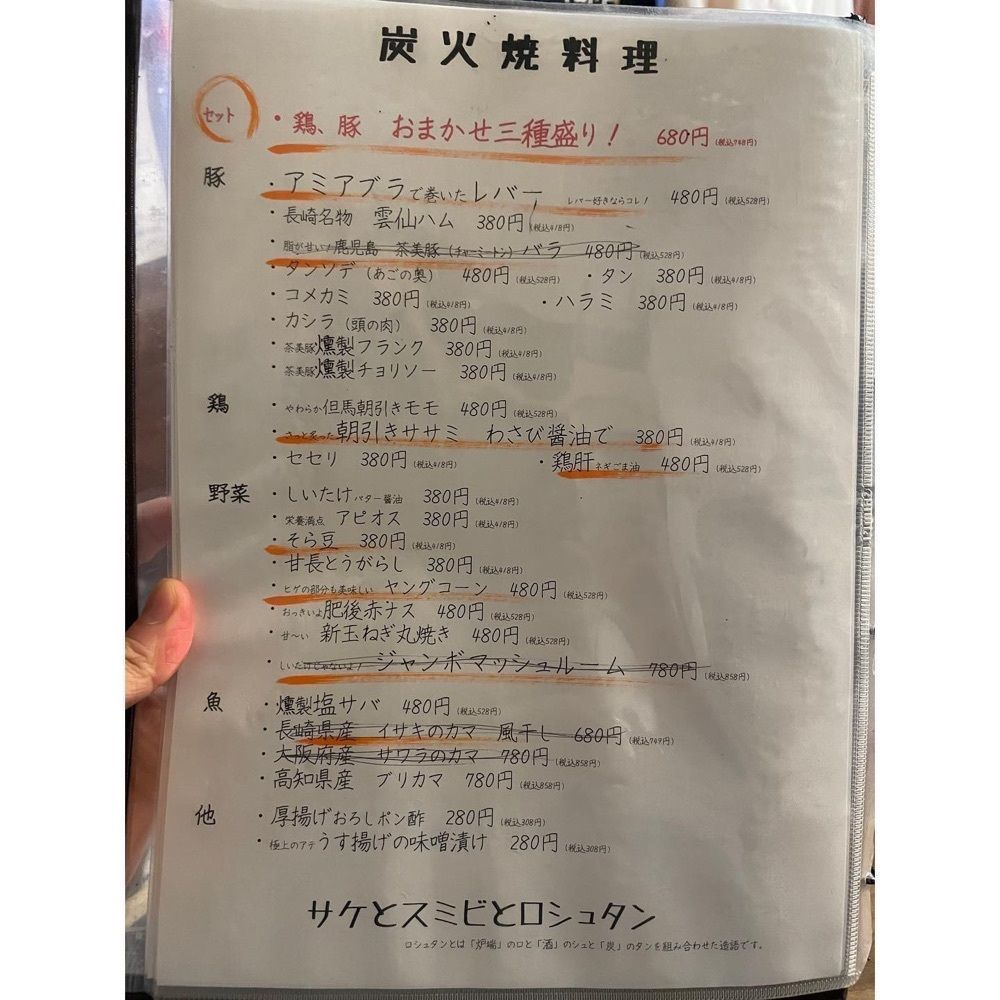 炭火焼料理
セット ・鶏、豚 おまかせ三種盛り! 680円 (税込748円)
豚 ・アミアブラで巻いたレバー レバー好きならコレ! 480円 (税込528円)
・長崎名物 雲仙ハム 380円 (税込418円)
・脂が甘い!鹿児島 茶美豚(チャーミートン) バラ 480円 (税込528円)
・タンソデ (あごの奥) 480円 (税込528円) ・タン 380円 (税込418円)
・コメカミ 380円 (税込418円) ・ハラミ 380円 (税込418円)
・カシラ (頭の肉) 380円 (税込418円)
・茶美豚燻製フランク 380円 (税込418円)
・茶美豚燻製チョリソー 380円 (税込418円)
鶏 ・やわらか但馬朝引きモモ 480円 (税込528円)
・さっと炙った朝引きササミ わさび醤油で 380円 (税込418円)
・セセリ 380円 (税込418円) ・鶏肝 ネギごま油 480円 (税込528円)
野菜 ・しいたけ バター醤油 380円 (税込418円)
・栄養満点 アピオス 380円 (税込418円)
・そら豆 380円 (税込418円)
・甘長とうがらし 380円 (税込418円)
・ヒゲの部分も美味しい ヤングコーン 480円 (税込528円)
・おっきいよ肥後赤ナス 480円 (税込528円)
・甘〜い 新玉ねぎ丸焼き 480円 (税込528円)
・しいたけじゃないよ! ジャンボマッシュルーム 780円 (税込858円)
魚 ・燻製塩サバ 480円 (税込528円)
・長崎県産 イサキのカマ 風干し 680円 (税込749円)
・大阪府産 サワラのカマ 780円 (税込858円)
・高知県産 ブリカマ 780円 (税込858円)
他 ・厚揚げおろしポン酢 280円 (税込308円)
・極上のアテうす揚げの味噌漬け 280円 (税込308円)
サケとスミビとロシュタン
ロシュタンとは「炉端」のロと「酒」のシュと「炭」のタンを組み合わせた造語です。